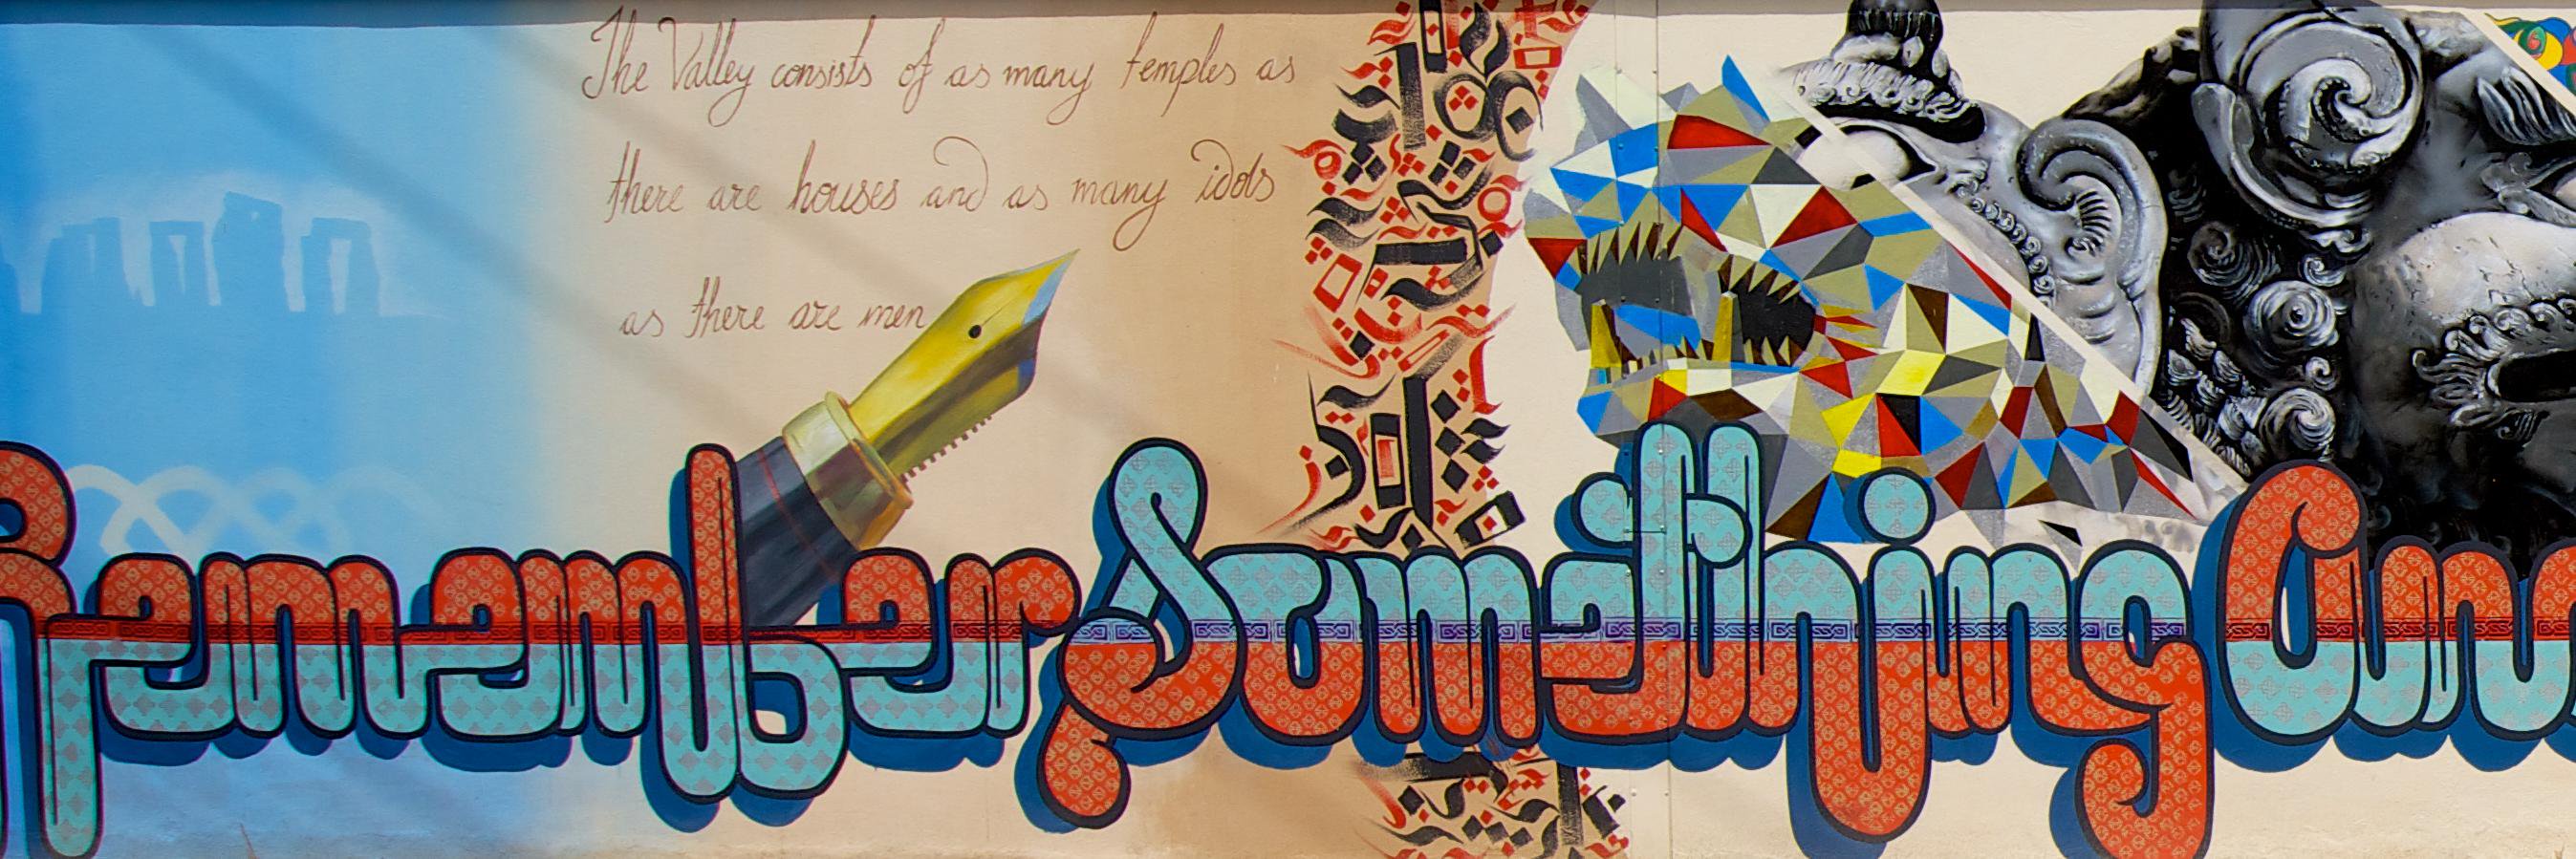 The Valley consists of as many temples as
there are houses and as many idols
as there are men
Remember Something